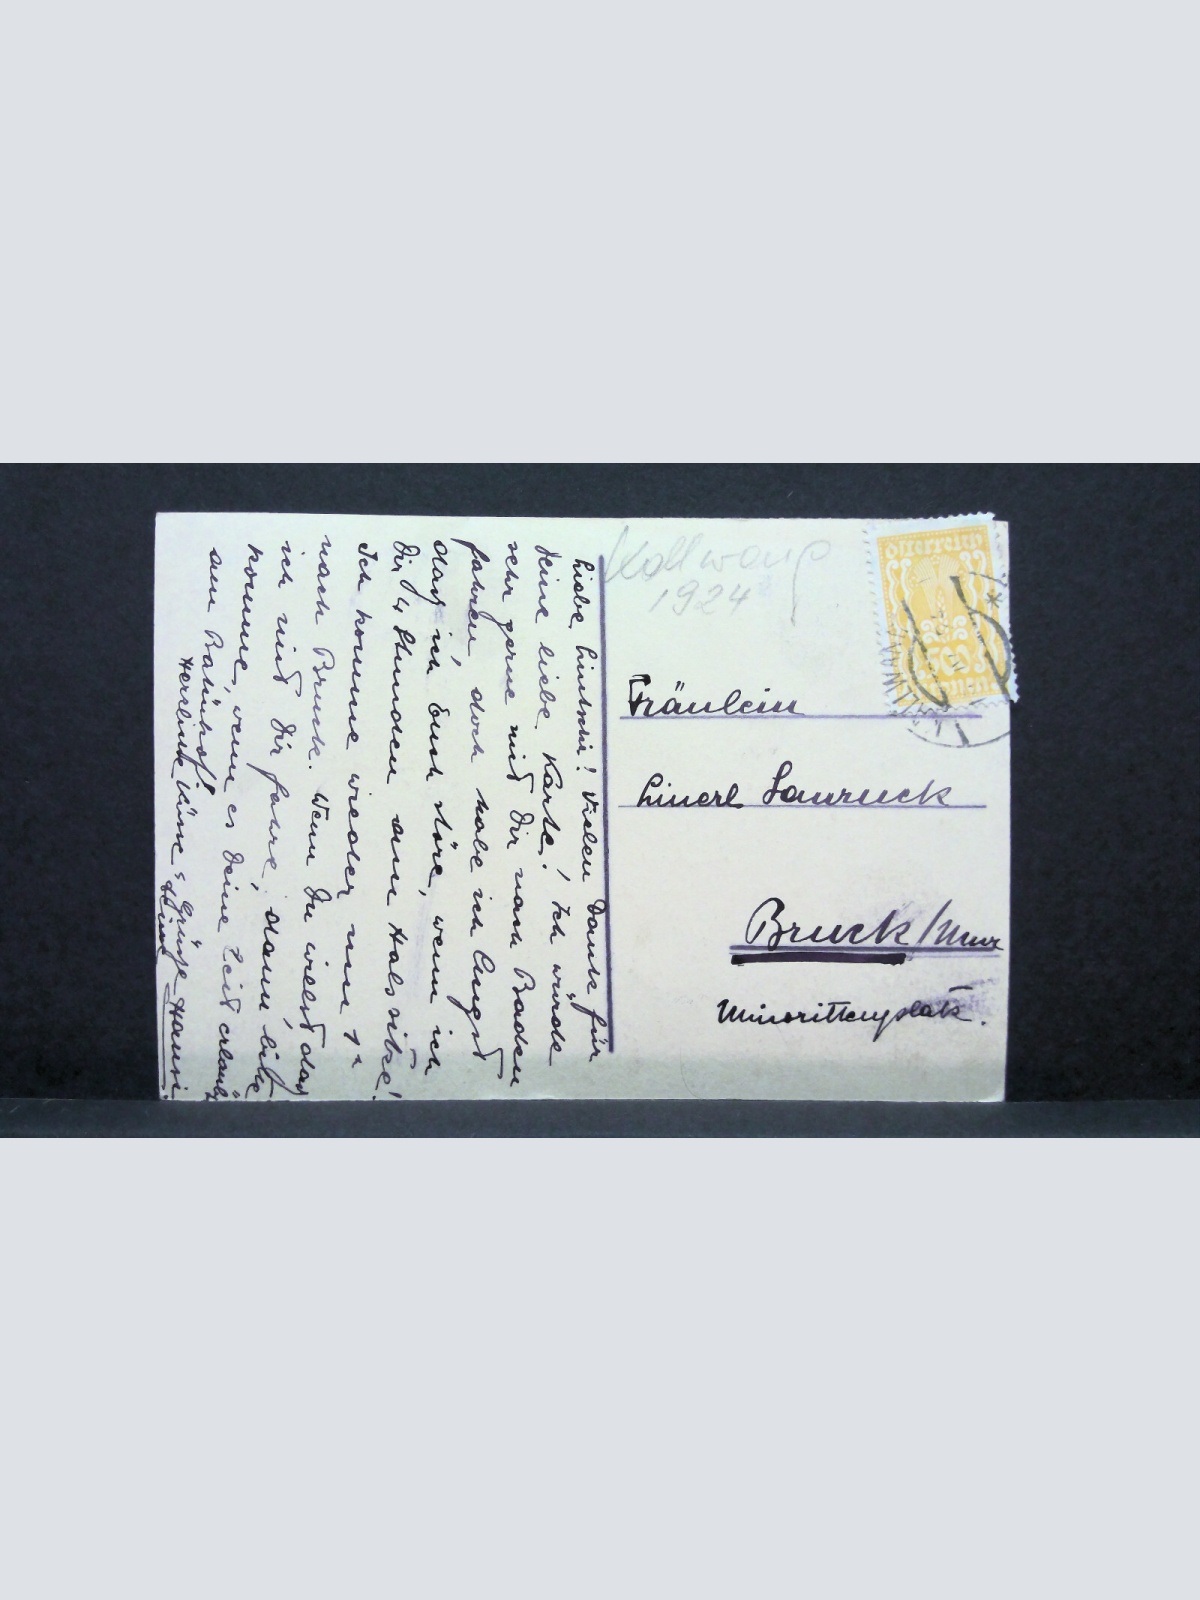 Liebe Lintschi! Vielen Dank für
Deine liebe Karte! Ich würde
sehr gerne mit Dir nach Baden
fahren, doch habe ich Angst
daß ich Euch störe, wenn ich
Dir 4 Stunden am Hals sitze!
Ich komme wieder um 1ʰ
nach Bruck. Wenn Du willst, daß
ich mit Dir fahre, dann bitte
komme, wenn es Deine Zeit erlaubt
am Bahnhof!
Herzlich Grüße
Hansi.
Kallwang
1924
Österreich
Fräulein
Linerl Lauruck
Bruck/Mur
Minoritenplatz.